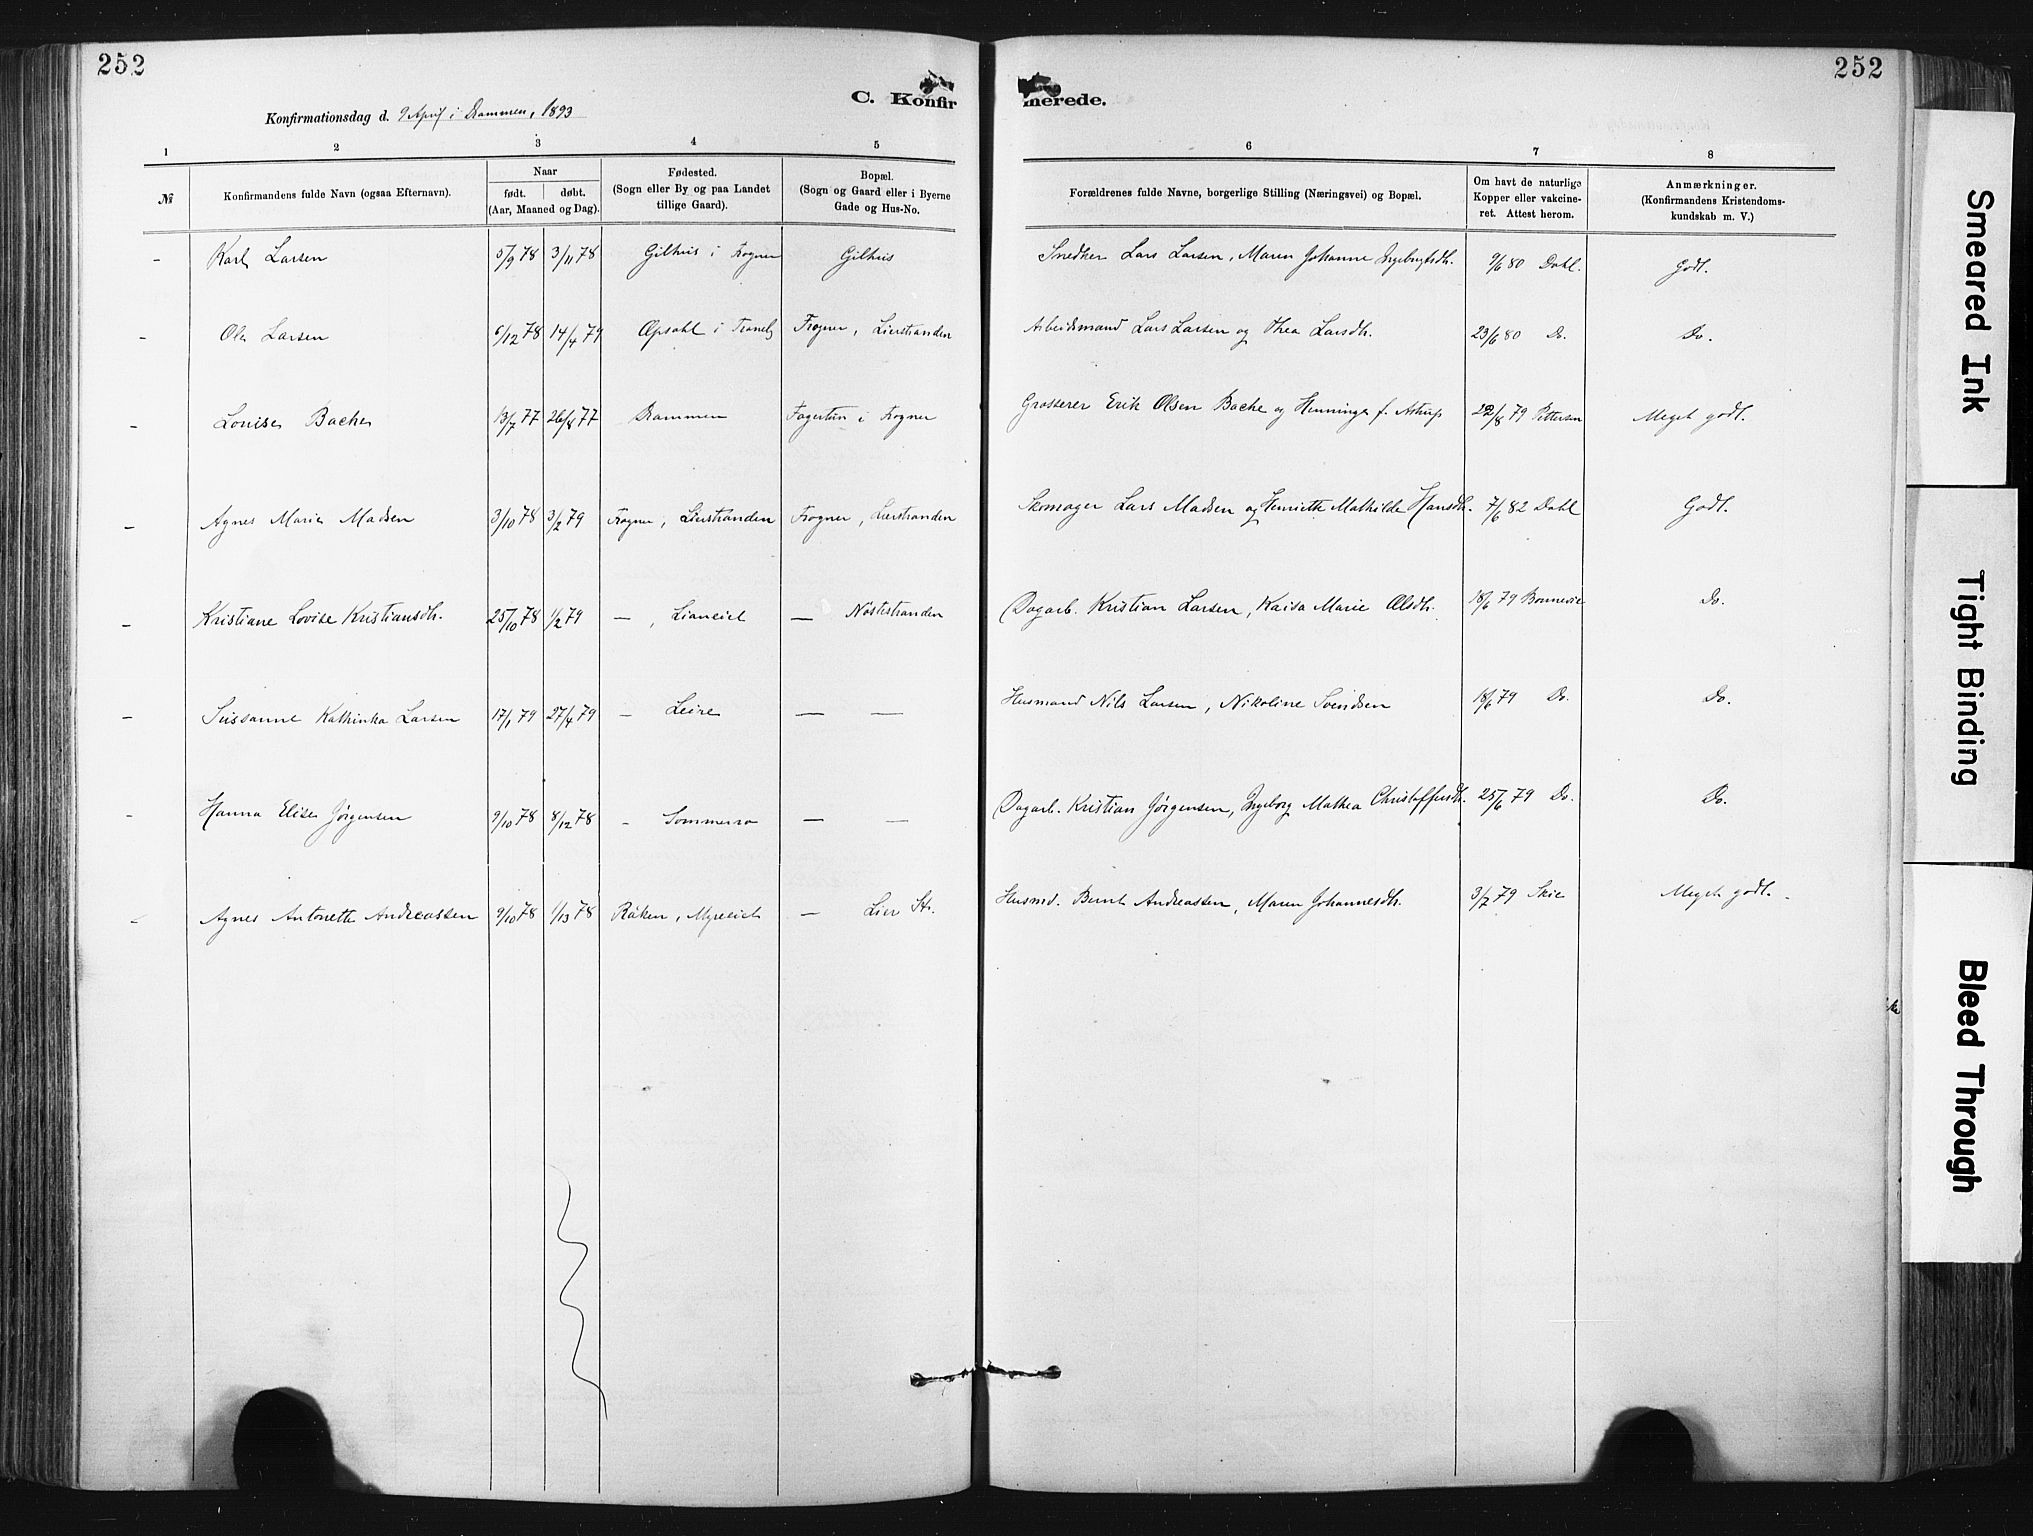 252
252
C. Konfir
merede.
Konfirmationsdag d. 9 April i Drammen, 1893
1 2 3 4 5 6 7 8
№
Konfirmandens fulde Navn (ogsaa Efternavn).
Naar
født. døbt.
(Aar, Maaned og Dag).
Fødested.
(Sogn eller By og paa Landet
tillige Gaard).
Bopæl.
(Sogn og Gaard eller i Byerne
Gade og Hus-No.
Forældrenes fulde Navne, borgerlige Stilling (Næringsvei) og Bopæl.
Om havt de naturlige
Kopper eller vakcine-
ret. Attest herom.
Anmærkninger.
(Konfirmandens Kristendoms-
kundskab m. V.)
- Karl Larsen 5/9 78 3/11 78 Gilhus i Frogner Gilhus Snedker Lars Larsen, Maren Johanne Ingebrigtsdtr. 9/6 80 Dahl. Godt.
- Ole Larsen 6/12 78 14/4 79 Opsahl i Tranby Frogner, Lierstranden Arbeidsmand Lars Larsen og Thea Larsdtr. 23/6 80 Do. Do.
- Louise Bache 13/7 77 26/8 77 Drammen Fagertun i Frogner Grosserer Erik Olsen Bache og Henninge f. Astrup 22/8 79 Pettersen Meget godt.
- Agnes Marie Madsen 3/10 78 3/2 79 Frogner, Lierstranden Frogner, Lierstranden Skomager Lars Madsen og Henriette Mathilde Hansdtr. 7/6 82 Dahl Godt.
- Kristiane Lovise Kristiansdtr. 25/10 78 1/2 79 — , Lianeiet — Nøstestranden Dagarb. Kristian Larsen, Kaisa Marie Olsdtr. 18/6 79 Bonnevie Do.
- Sussanne Kathinka Larsen 17/1 79 27/4 79 — Leire — — Husmand Nils Larsen, Nikoline Svendsen 18/6 79 Do. Do.
- Hanna Elise Jørgensen 9/10 78 8/12 78 - Sommerro — — Dagarb. Kristian Jørgensen, Ingeborg Mathea Christoffersdtr. 25/6 79 Do. Do.
- Agnes Antonette Andreassen 9/10 78 1/13 78 Røken, Myreeiet — Lier Str. Husmd. Bernt Andreassen, Maren Johannesdtr. 3/7 79 Skie Meget godt.
Smeared Ink
Tight Binding
Bleed Through